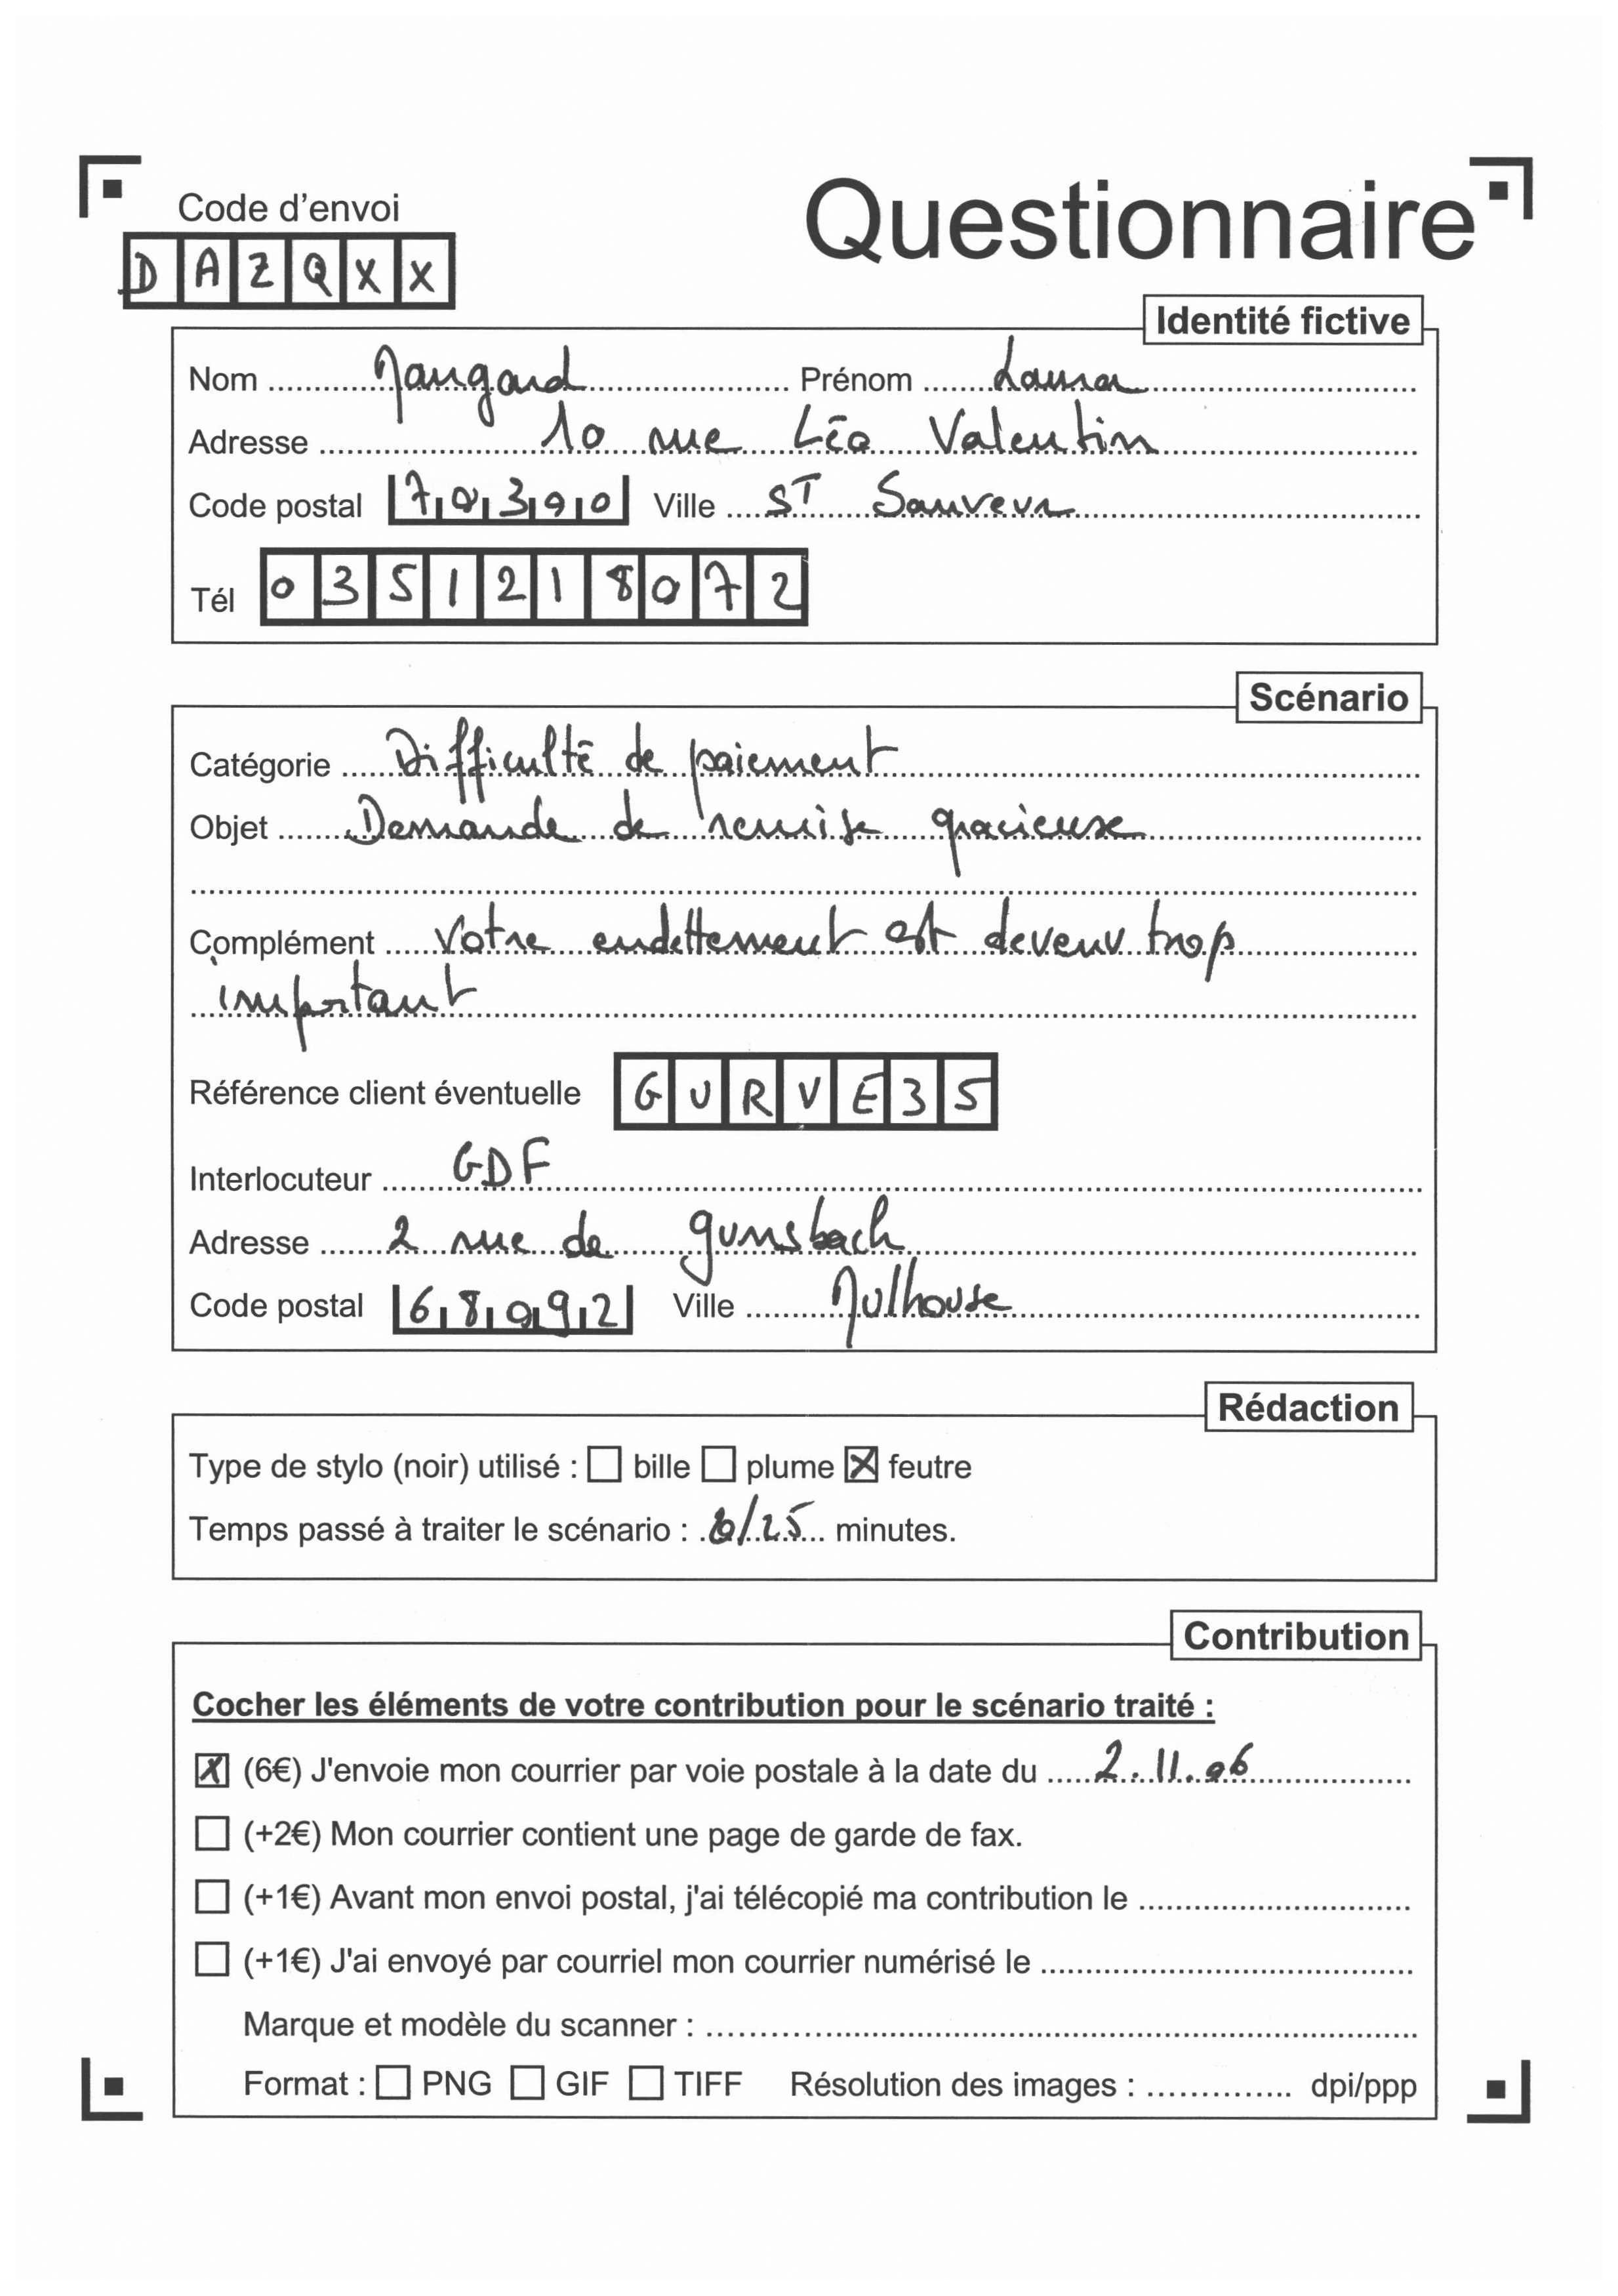 Code d'envoi
Questionnaire
D A Z Q X X
Identité fictive
Nom Maugard Prénom Laura
Adresse 10 rue Léo Valentin
Code postal 70390 Ville ST Sauveur
Tél 0351218072
Scénario
Catégorie Difficulté de paiement
Objet Demande de remise gracieuse
Complément Votre endettement est devenu trop
important
Référence client éventuelle GURVE35
Interlocuteur GDF
Adresse 2 rue de gunsbach
Code postal 68092 Ville Mulhouse
Rédaction
Type de stylo (noir) utilisé : bille plume feutre
Temps passé à traiter le scénario : /25 minutes.
Contribution
Cocher les éléments de votre contribution pour le scénario traité :
(6€) J'envoie mon courrier par voie postale à la date du 2.11.06
(+2€) Mon courrier contient une page de garde de fax.
(+1€) Avant mon envoi postal, j'ai télécopié ma contribution le
(+1€) J'ai envoyé par courriel mon courrier numérisé le
Marque et modèle du scanner :
Format : PNG GIF TIFF Résolution des images : dpi/ppp